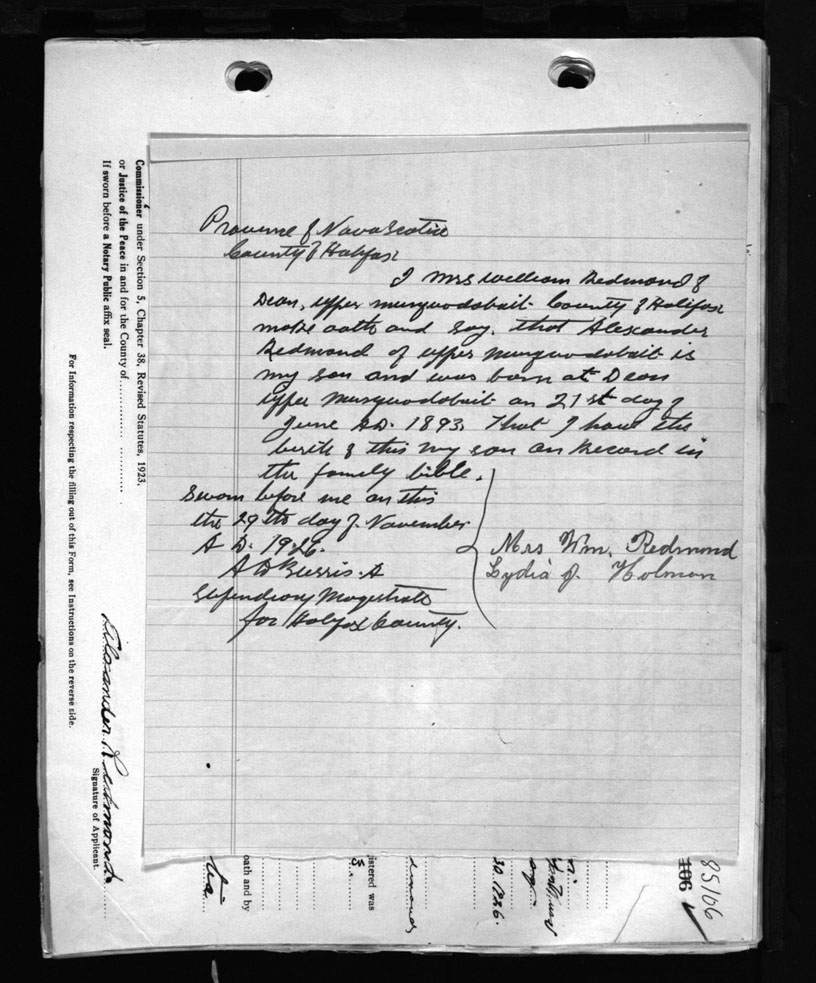 Province of Nova Scotia
County of Halifax
I Mrs William Redmond of
Dean, upper musquodoboit County of Halifax
make oath and say, that Alexander
Redmond of upper musquodoboit is
my son and was born at Dean
upper Musquodoboit on 21st day of
June A.D. 1893, that I have the
birth of this my son on Record in
the family bible.
Sworn before me on this
the 29th day of November
A D. 1926.
Mrs Wm. Redmond
Lydia J. Holman
Stipendiary Magistrate
for Halifax County.
Commissioner under Section 5, Chapter 38, Revised Statutes, 1923.
or Justice of the Peace in and for the County of
If sworn before a Notary Public affix seal.
For Information respecting the filling out of this Form, see Instructions on the reverse side.
Alexander Redmond.
Signature of Applicant.
tia
oath and by
istered was
30.1926.
106
85106